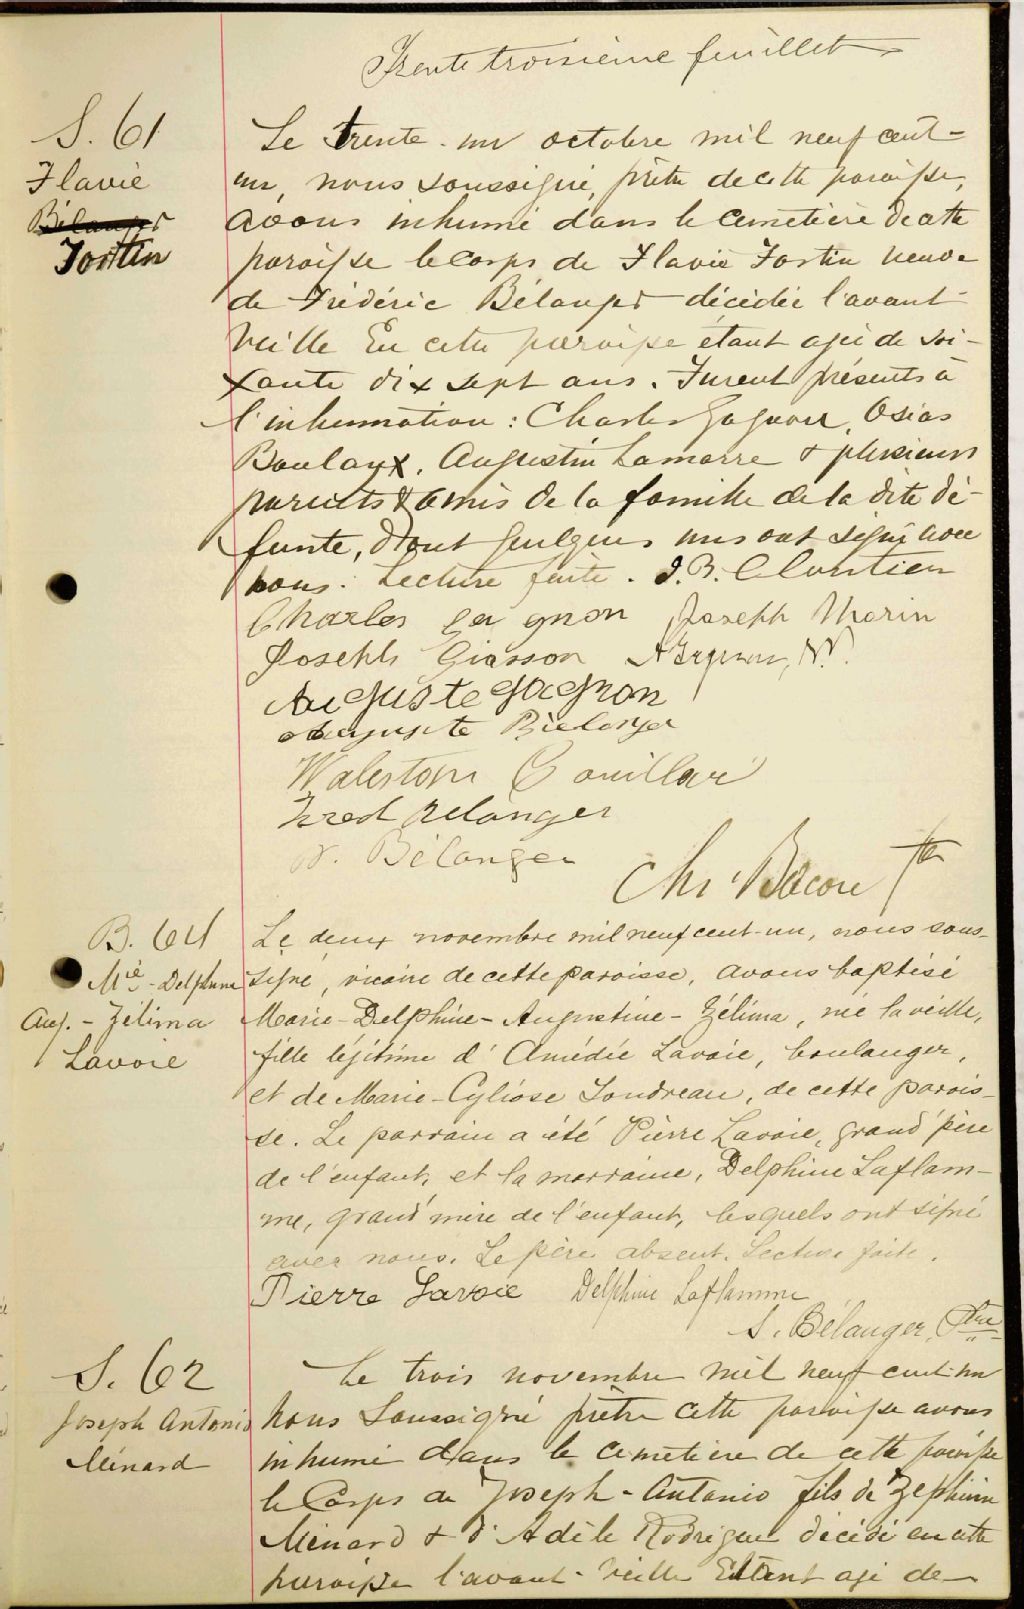 Trente troisième feuillet
S. 61
Flavie
Bélanger
Fortin
Le trente-un octobre mil neuf cent-
un, nous soussigné, prêtre de cette paroisse,
avons inhumé dans le cimetière de cette
paroisse le corps de Flavie Fortin veuve
de Frédéric Bélanger décédée l'avant-
veille En cette paroisse étant agée de soi-
xante dix sept ans. Furent présents à
l'inhumation : Charles Gagnon, Osias
Boulay, Augustin Lamarre & plusieurs
parents & amis de la famille de la dite dé-
funte, dont quelques uns ont signé avec
nous. Lecture faite. J.B. Cloutier
Charles Gagnon Joseph Morin
Joseph Giasson
Auguste Gagnon
Auguste Bielanger
Couillard
Fred Belanger
Bélanger
Chs Bacon Ptre
B. 64
Mie-Delphine
Aug.-Zélima
Lavoie
Le deux novembre mil neuf cent-un, nous sous-
signé, vicaire de cette paroisse, avons baptisé
Marie-Delphine-Augustine-Zélima, née la veille,
fille légitime d'Amédée Lavoie, boulanger,
et de Marie-Cyliose Jondreau, de cette parois-
se. Le parrain a été Pierre Lavoie, grand'père
de l'enfant, et la marraine, Delphine Laflam-
me, grand'mère de l'enfant, lesquels ont signé
avec nous. Le père absent. Lecture faite.
Pierre Lavoie Delphine Laflamme
S. Bélanger, Ptre
S. 62
Joseph Antonio
Ménard
Le trois novembre mil neuf cent-un
nous soussigné prêtre cette paroisse avons
inhumé dans le cimetière de cette paroisse
le corps de Joseph-Antonio fils de Zéphirin
Ménard & d'Adèle Rodrigue décédé en cette
paroisse l'avant-veille Etant agé de